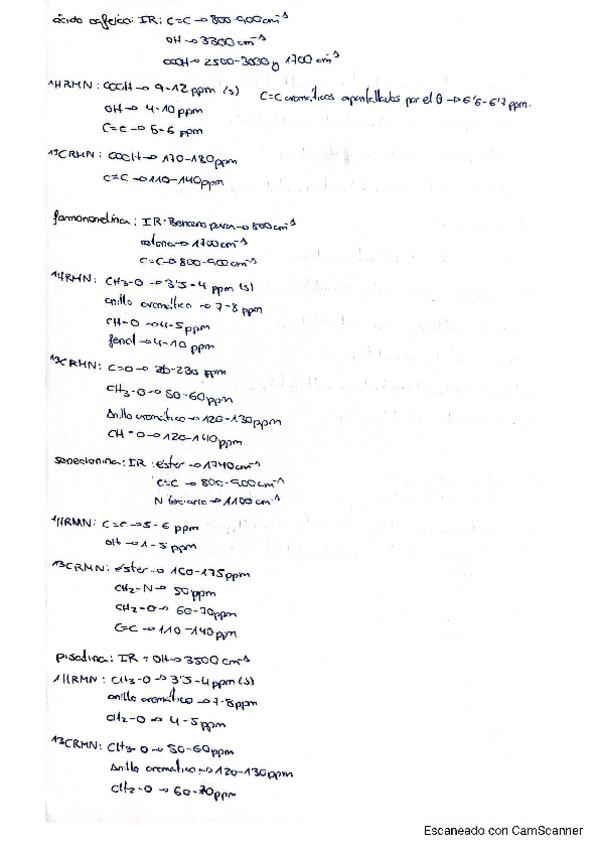 ácido cafeico: IR: C=C → 800-900cm⁻¹
OH → 3300 cm⁻¹
COOH → 2500-3000 y 1700 cm⁻¹
¹HRMN: COOH → 9-12ppm (s) C=C aromáticos apantallados por el θ → 6'6-6'7 ppm.
OH → 4-10 ppm
C=C → 5-6 ppm
¹³CRMN: COOH → 170-180ppm
C=C → 110-140ppm
formononetina: IR: Benceno para → 800cm⁻¹
cetona → 1700cm⁻¹
C=C → 800-900cm⁻¹
¹HRMN: CH3-O → 3'5-4 ppm (s)
anillo aromático → 7-8 ppm
CH-O → 4-5ppm
fenol → 4-10 ppm
¹³CRMN: C=O → ppm
CH3-O → 50-60ppm
Anillo aromático → 120-130ppm
CH-O → 120-140ppm
senecionina: IR: éster → 1740cm⁻¹
C=C → 800-900cm⁻¹
N terciario → 1100cm⁻¹
¹HRMN: C=C → 5-6 ppm
OH → 1-5 ppm
¹³CRMN: éster → 160-175ppm
CH2-N → 50ppm
CH2-O → 60-70ppm
C=C → 110-140ppm
pisatina: IR: OH → 3500cm⁻¹
¹HRMN: CH3-O → 3'5-4ppm (s)
anillo aromático → 7-8ppm
CH2-O → 4-5ppm
¹³CRMN: CH3-O → 50-60ppm
Anillo aromático → 120-130ppm
CH2-O → 60-70ppm
Escaneado con CamScanner